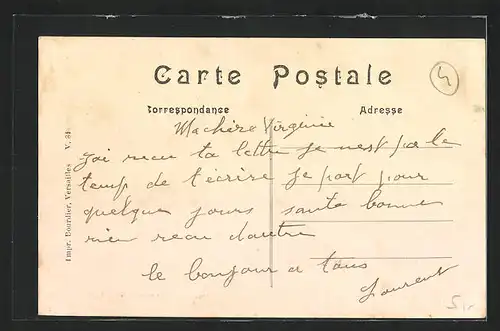 Carte Postale
4
Correspondance
Adresse
Ma chère Virginie
Jai recu ta lettre je nest pas le
temp de t'écrire je part pour
quelque jours santé bonne
rien recu dautre
le bonjour a tous
Laurent
Impr. Bourdier, Versailles V. 84